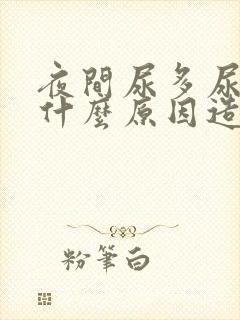 夜間尿多尿
什麼原因造
粉筆白